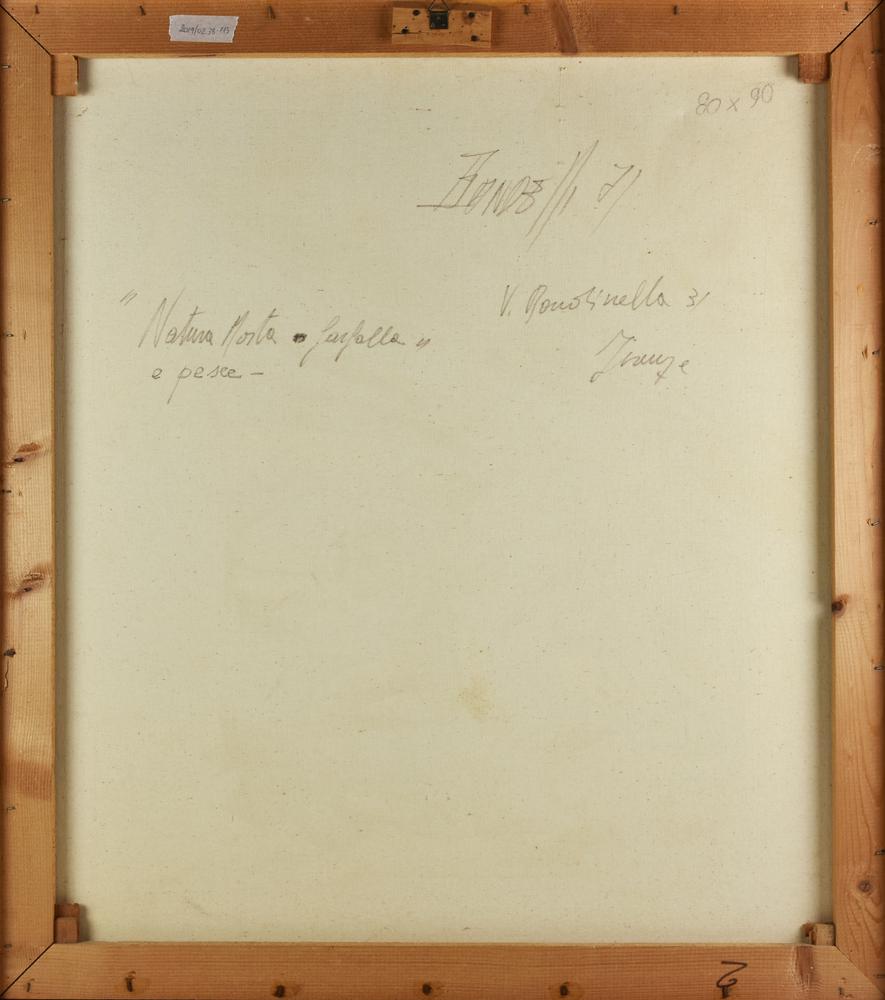 2019/02.38-113
80 x 90
71
" Natura Morta " farfalla "
e pesce -
V. 31
Firenze
2